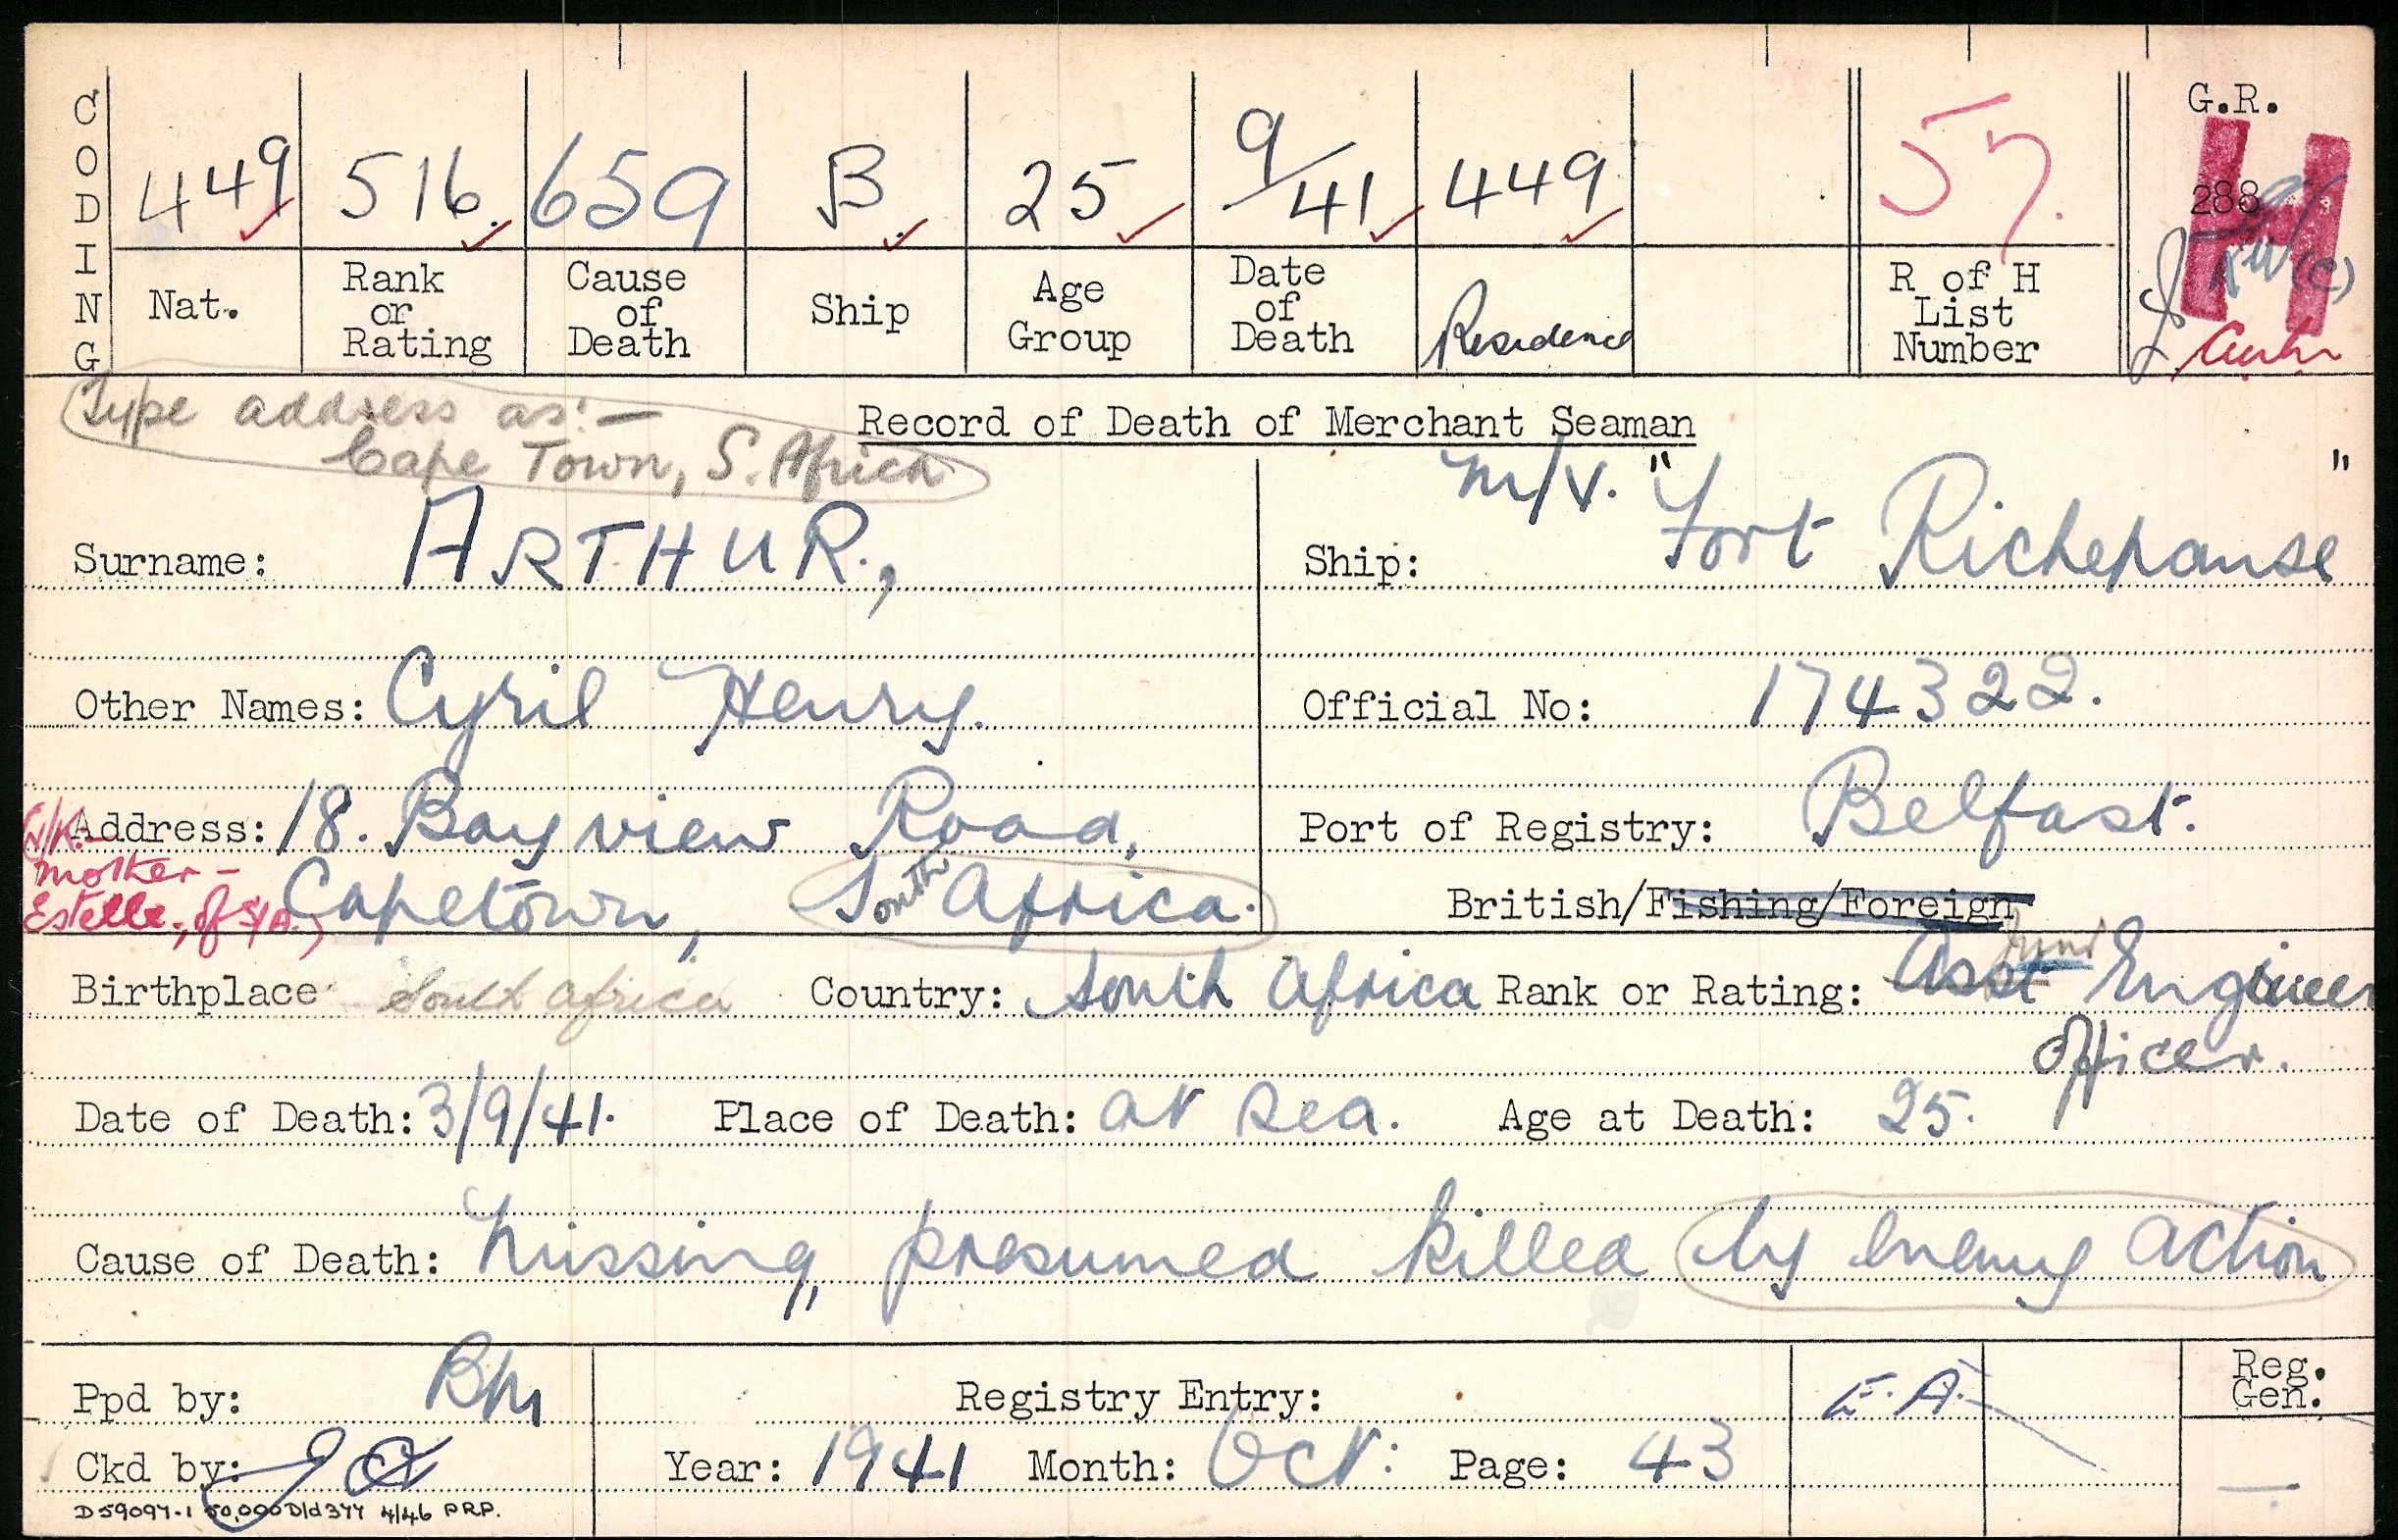 CODING
449 516. 659 B. 25 9/41 449 57. G.R.
H
288
(C)
Nat. Rank or Rating Cause of Death Ship Age Group Date of Death Residence R of H List Number
Type address as:—
Cape Town, S. Africa
Record of Death of Merchant Seaman
Surname: ARTHUR.,
Ship: M/V. "Fort Richepanse"
Other Names: Cyril Henry.
Official No: 174322.
Address: 18. Bay view Road,
Capetown, South Africa.
N/K.
Mother -
Estelle, of S/A.)
Port of Registry: Belfast.
British/Fishing/Foreign
Birthplace South Africa Country: South Africa Rank or Rating: Asst Engineer
Officer.
Date of Death: 3/9/41. Place of Death: at sea. Age at Death: 25.
Cause of Death: Missing, presumed killed by enemy action
Ppd by: Registry Entry: E.A. Reg. Gen.
Ckd by: Year: 1941 Month: Oct: Page: 43
D59097-1 50,000 D/d377 4/46 P.R.P.